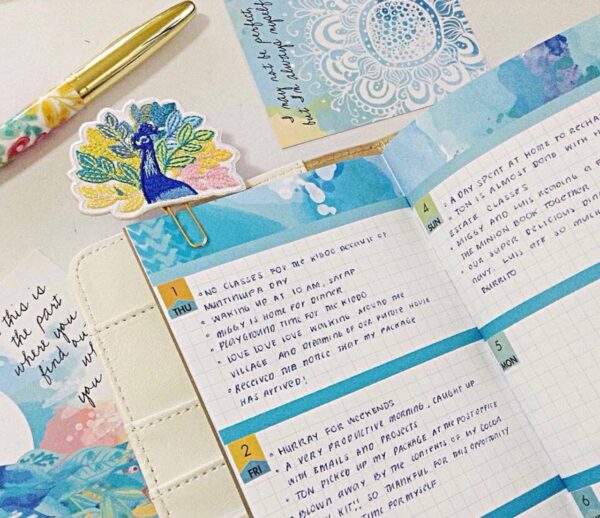 I may not be perfect,
but I'm always myself
this is
the part
where you
find out
you
1
THU
• NO CLASSES FOR THE KIDDO BECAUSE OF
MUNTINLUPA DAY
• WAKING UP AT 10 AM, SARAP
• MIGGY IS HOME FOR DINNER
• PLAYGROUND TIME FOR THE KIDDO
• LOVE LOVE LOVE WALKING AROUND THE
VILLAGE AND DREAMING OF OUR FUTURE HOUSE
• RECEIVED THE NOTICE THAT MY PACKAGE
HAS ARRIVED!
2
FRI
• HURRAY FOR WEEKENDS
• A VERY PRODUCTIVE MORNING, CAUGHT UP
WITH EMAILS AND PROJECTS
• TON PICKED UP MY PACKAGE AT THE POST OFFICE
• BLOWN AWAY BY THE CONTENTS OF MY COCOA
KIT!! SO THANKFUL FOR THIS OPPORTUNITY
TIME FOR MYSELF
4
SUN
• A DAY SPENT AT HOME TO RECHA
• TON IS ALMOST DONE WITH H
ESTATE CLASSES
• MIGGY AND LUIS READING A
THE MINION BOOK TOGETHER
• OUR SUPER DELICIOUS DINN
NAVY, LUIS ATE SO MUCH
BURRITO
5
MON
6